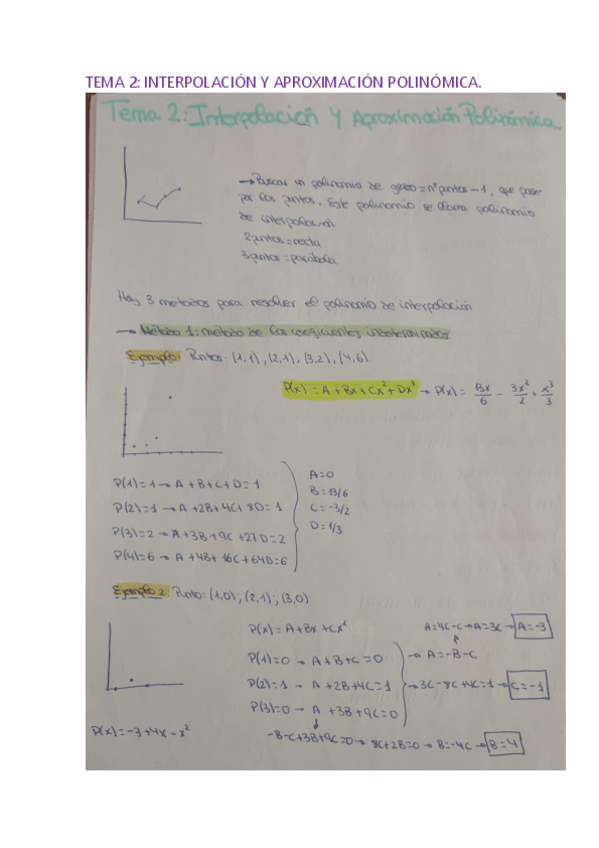 TEMA 2: INTERPOLACIÓN Y APROXIMACIÓN POLINÓMICA.
Tema 2: Interpolación y Aproximación Polinómica.
→ Buscar un polinomio de grado = nº puntos - 1, que pase
por los puntos. Este polinomio se llama polinomio
de interpolación
2 puntos = recta
3 puntos = parábola
Hay 3 métodos para resolver el polinomio de interpolación
→ Método 1: método de los coeficientes indeterminados
Ejemplo: Puntos: (1,1), (2,1), (3,2), (4,6)
P(x) = A + Bx + Cx² + Dx³ → P(x) = 13x/6 - 3x²/2 + x³/3
P(1)=1 → A + B + C + D = 1
P(2)=1 → A + 2B + 4C + 8D = 1
P(3)=2 → A + 3B + 9C + 27D = 2
P(4)=6 → A + 4B + 16C + 64D = 6
A=0
B=13/6
C=-3/2
D=1/3
Ejemplo 2: Punto: (1,0), (2,1), (3,0)
P(x) = A + Bx + Cx²
P(1)=0 → A + B + C = 0
P(2)=1 → A + 2B + 4C = 1
P(3)=0 → A + 3B + 9C = 0
A=4C-C → A=3C → A=-3
→ A=-B-C
→ 3C-8C+4C=1 → C=-1
-B-C+3B+9C=0 → 8C+2B=0 → B=-4C → B=4
P(x)=-3+4x-x²